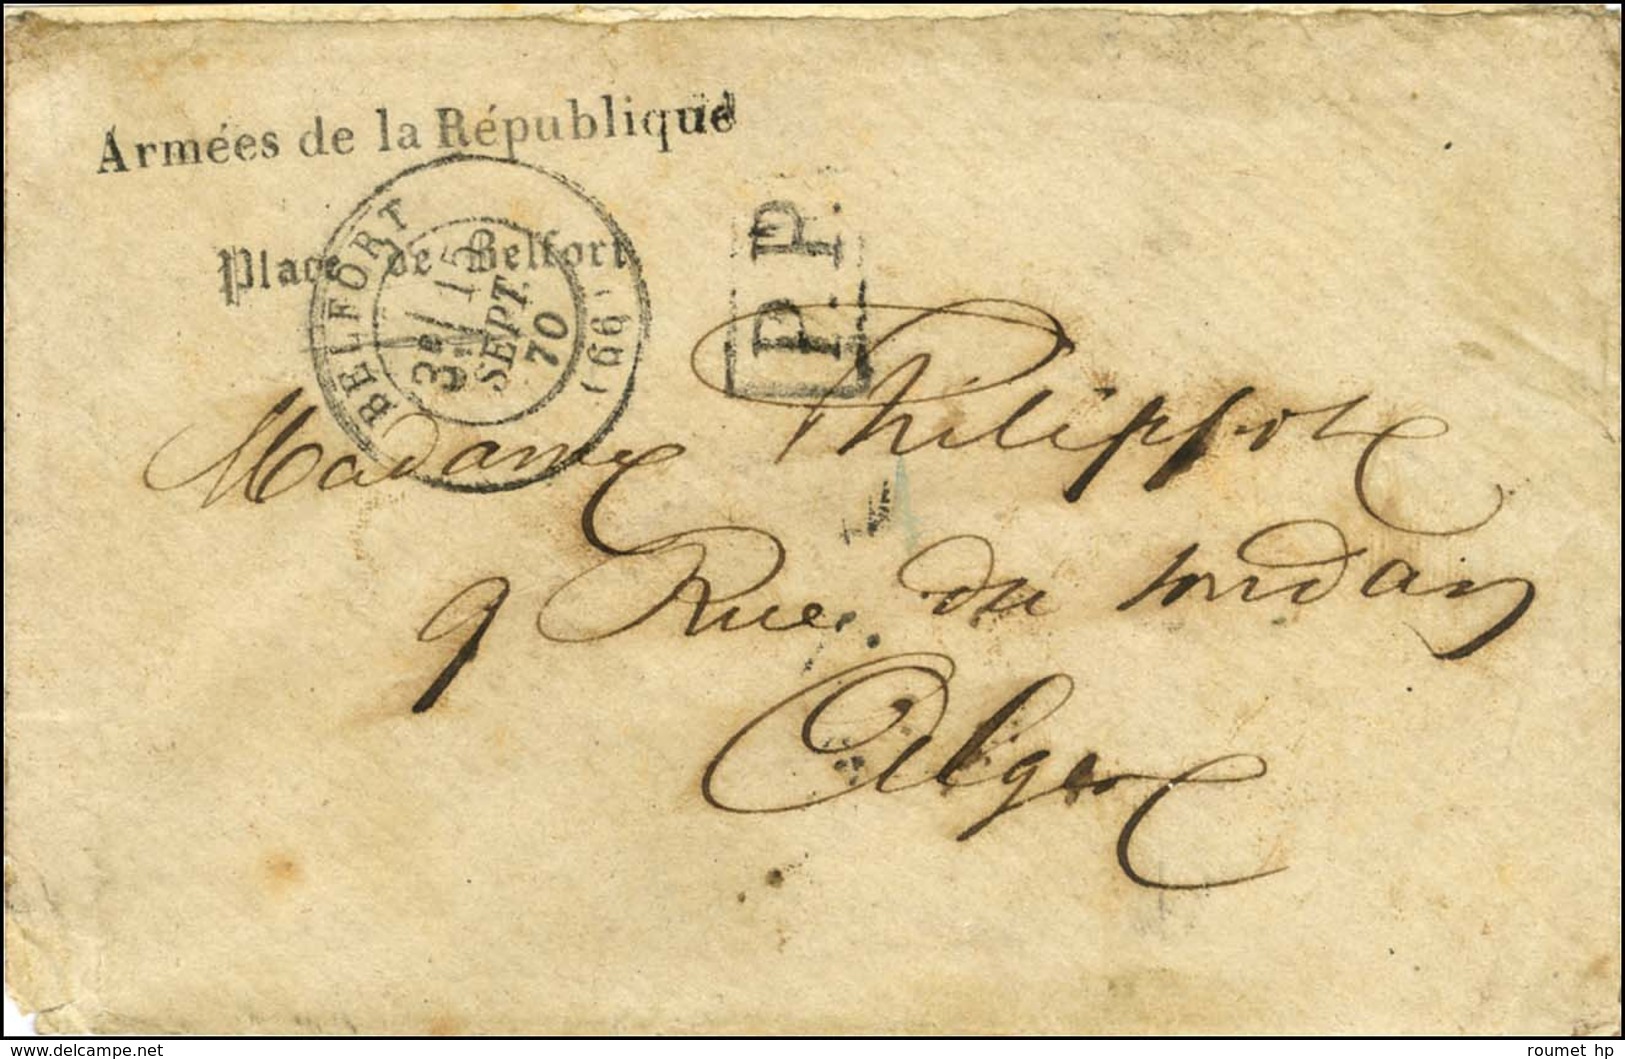 Armées de la République
Place de Belfort
BELFORT
3e/ 15
SEPT.
70
(66)
P.P.
Madame Philippote
9 Rue du Jourdain
Alger
delcampe.net
roumet hp